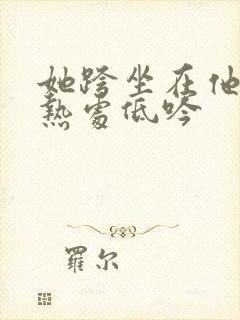 她跨坐在他
熱處低吟
羅尔